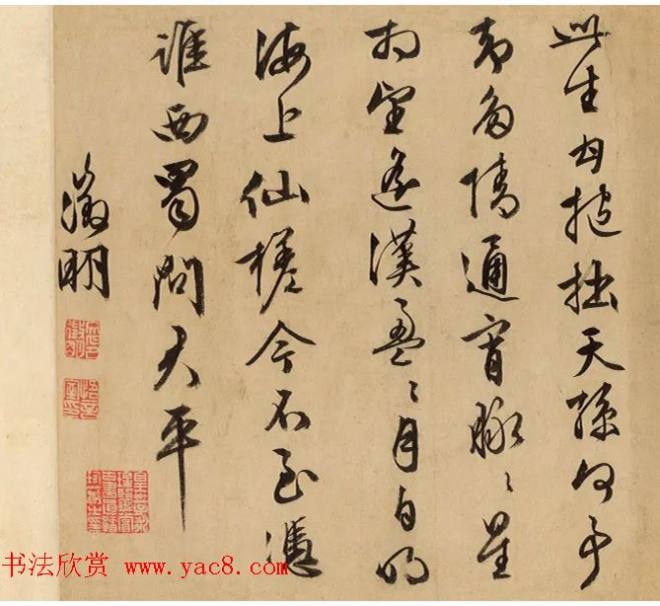 此生甘抱拙天孫何事
却多情通宵脉〻星
相望遙漢盈〻月自明
海上仙槎今不至憑
誰西蜀問君平
徵明
书法欣赏 www.yac8.com